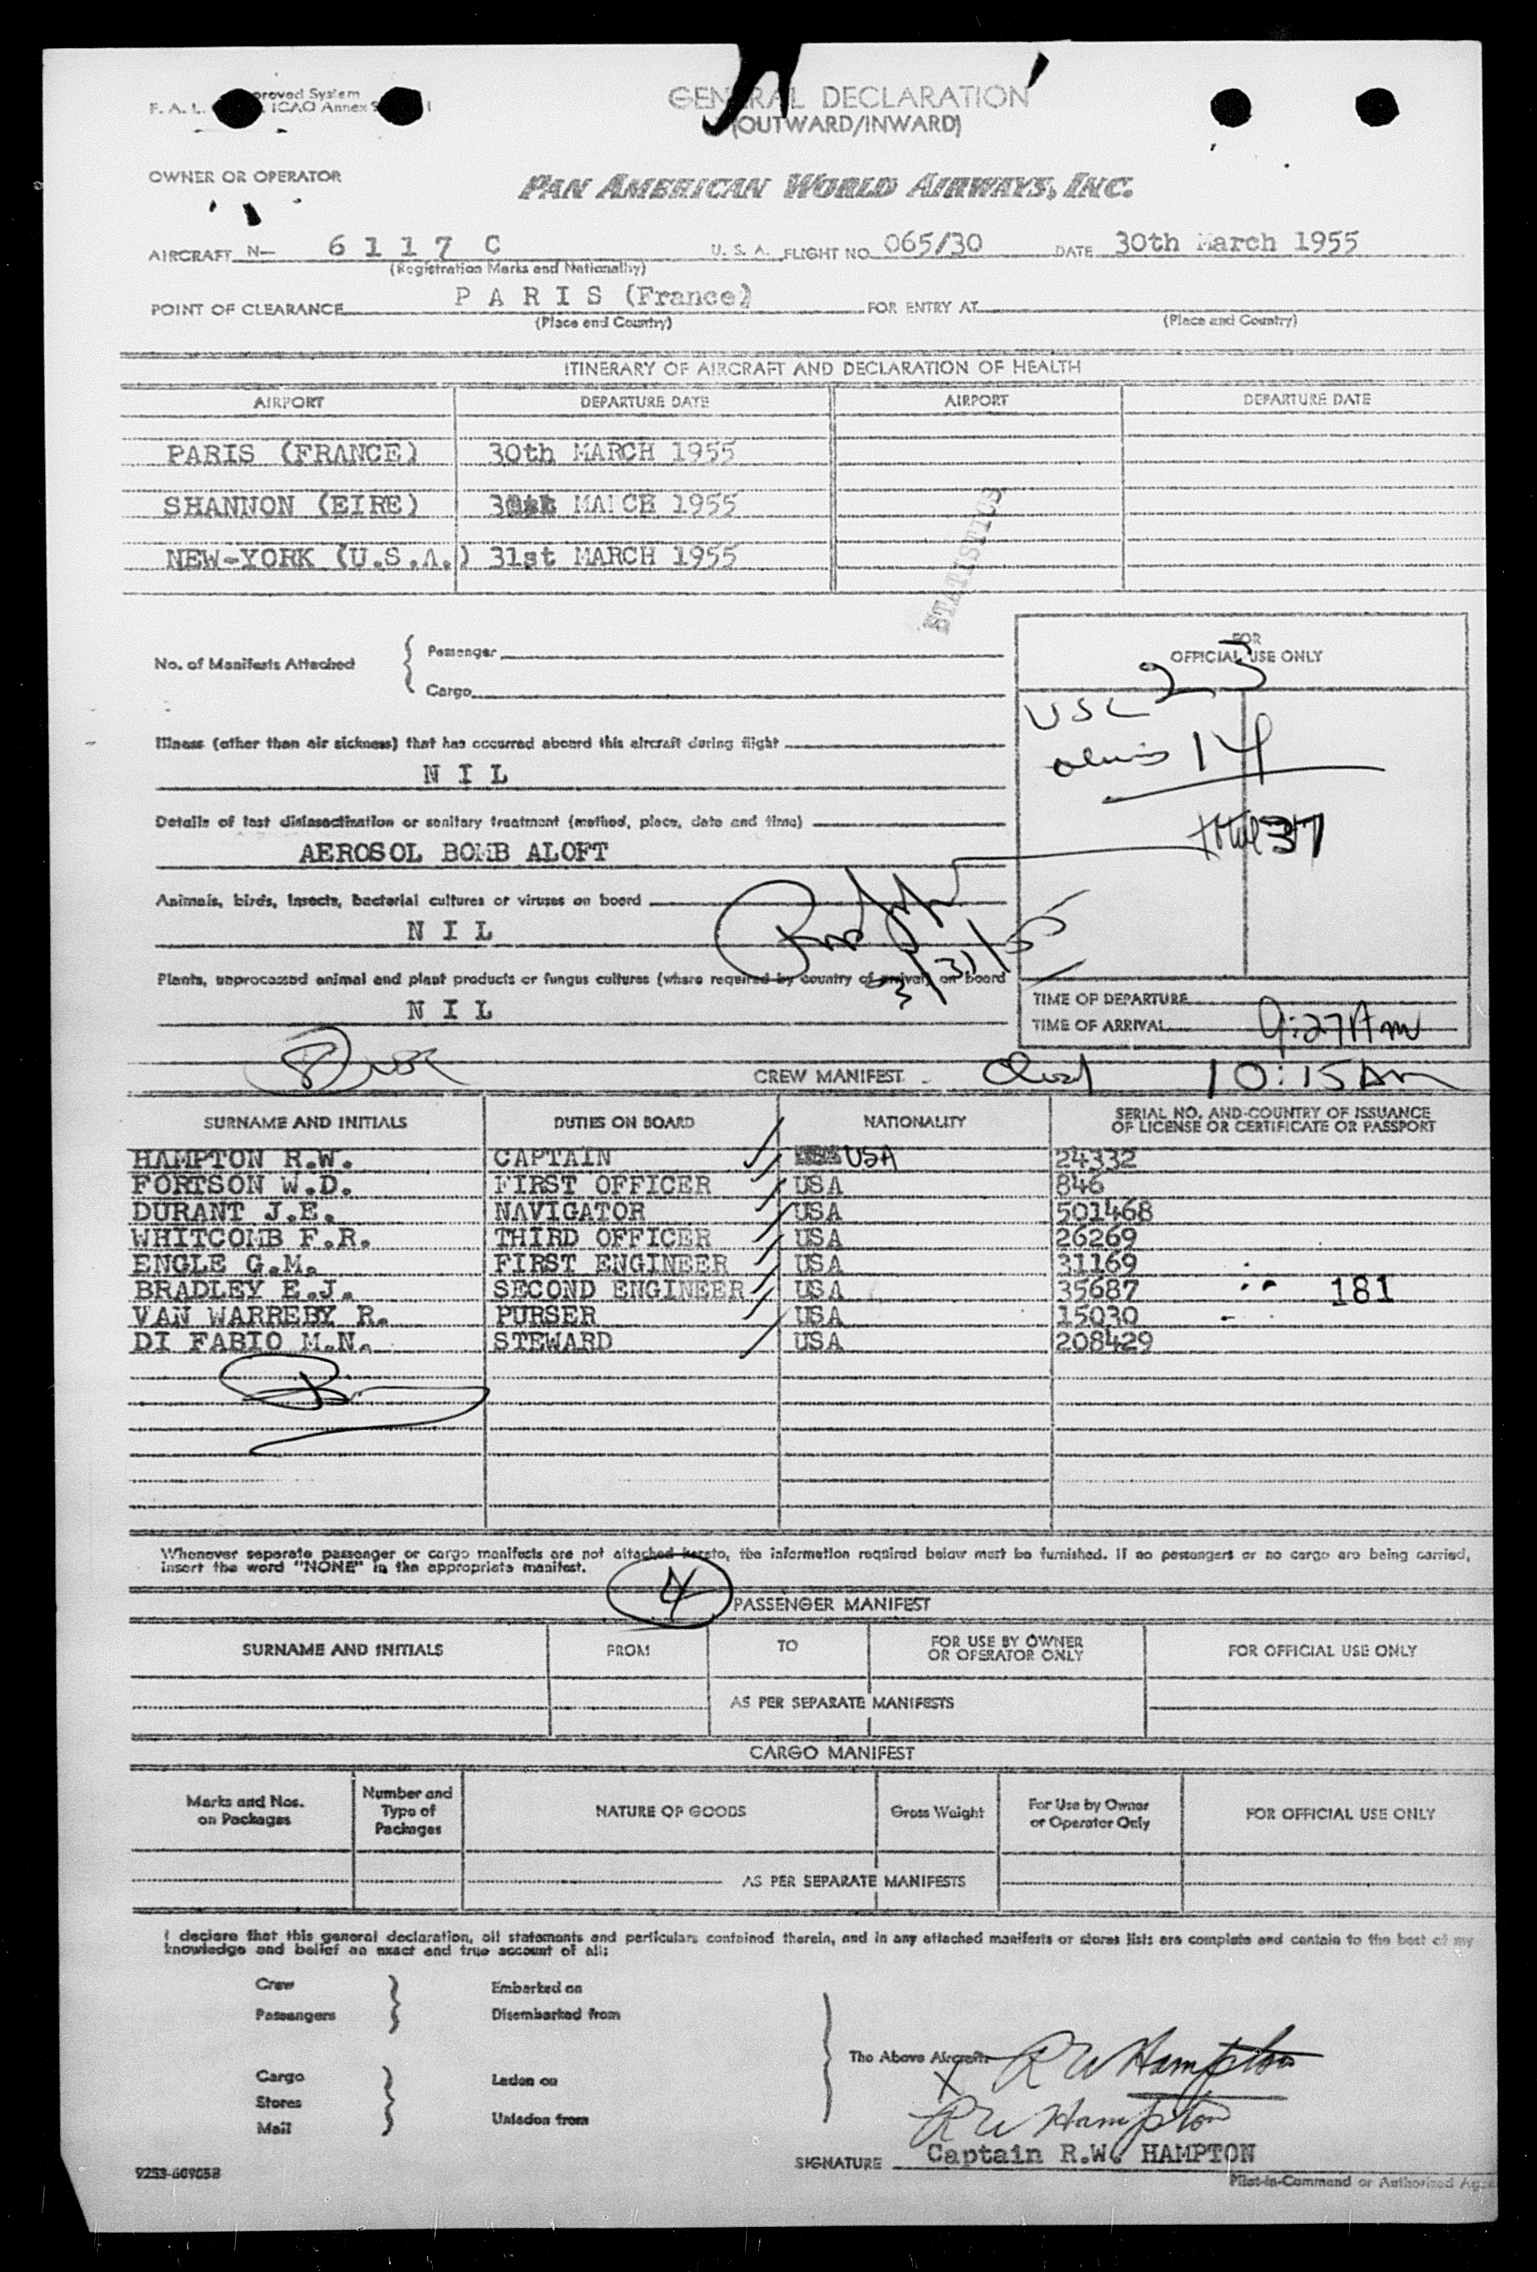 GENERAL DECLARATION
(OUTWARD/INWARD)
OWNER OR OPERATOR
PAN AMERICAN WORLD AIRWAYS, INC.
AIRCRAFT N- 6117 C U. S. A. FLIGHT NO. 065/30 DATE 30th March 1955
(Registration Marks and Nationality)
POINT OF CLEARANCE PARIS (France) FOR ENTRY AT
(Place and Country) (Place and Country)
ITINERARY OF AIRCRAFT AND DECLARATION OF HEALTH
AIRPORT DEPARTURE DATE AIRPORT DEPARTURE DATE
PARIS (FRANCE) 30th MARCH 1955
SHANNON (EIRE) MARCH 1955
NEW-YORK (U.S.A.) 31st MARCH 1955
STATISTICS
No. of Manifests Attached { Passenger
Cargo
FOR
OFFICIAL USE ONLY
USC 23
14
37
Illness (other than air sickness) that has occurred aboard this aircraft during flight
NIL
Details of last disinsectization or sanitary treatment (method, place, date and time)
AEROSOL BOMB ALOFT
Animals, birds, insects, bacterial cultures or viruses on board
NIL
3/31/55
Plants, unprocessed animal and plant products or fungus cultures (where required by country of arrival) on board
NIL
TIME OF DEPARTURE
TIME OF ARRIVAL 9:27 Am
CREW MANIFEST 10:15 Am
SURNAME AND INITIALS DUTIES ON BOARD NATIONALITY SERIAL NO. AND COUNTRY OF ISSUANCE
OF LICENSE OR CERTIFICATE OR PASSPORT
HAMPTON R.W. CAPTAIN USA 24332
FORTSON W.D. FIRST OFFICER USA 846
DURANT J.E. NAVIGATOR USA 501468
WHITCOMB F.R. THIRD OFFICER USA 26269
ENGLE G.M. FIRST ENGINEER USA 31169
BRADLEY E.J. SECOND ENGINEER USA 35687 181
VAN WARREBY R. PURSER USA 15030
DI FABIO M.N. STEWARD USA 208429
Whenever separate passenger or cargo manifests are not attached hereto, the information required below must be furnished. If no passengers or no cargo are being carried,
insert the word "NONE" in the appropriate manifest.
4
PASSENGER MANIFEST
SURNAME AND INITIALS FROM TO FOR USE BY OWNER
OR OPERATOR ONLY FOR OFFICIAL USE ONLY
AS PER SEPARATE MANIFESTS
CARGO MANIFEST
Marks and Nos.
on Packages Number and
Type of
Packages NATURE OF GOODS Gross Weight For Use by Owner
or Operator Only FOR OFFICIAL USE ONLY
AS PER SEPARATE MANIFESTS
I declare that this general declaration, all statements and particulars contained therein, and in any attached manifests or stores lists are complete and contain to the best of my
knowledge and belief an exact and true account of all:
Crew Embarked on
Passengers Disembarked from
The Above Aircraft: R W Hampton
Cargo Laden on
Stores
Mail Unladen from
R W Hampton
SIGNATURE Captain R.W. HAMPTON
Pilot-in-Command or Authorized